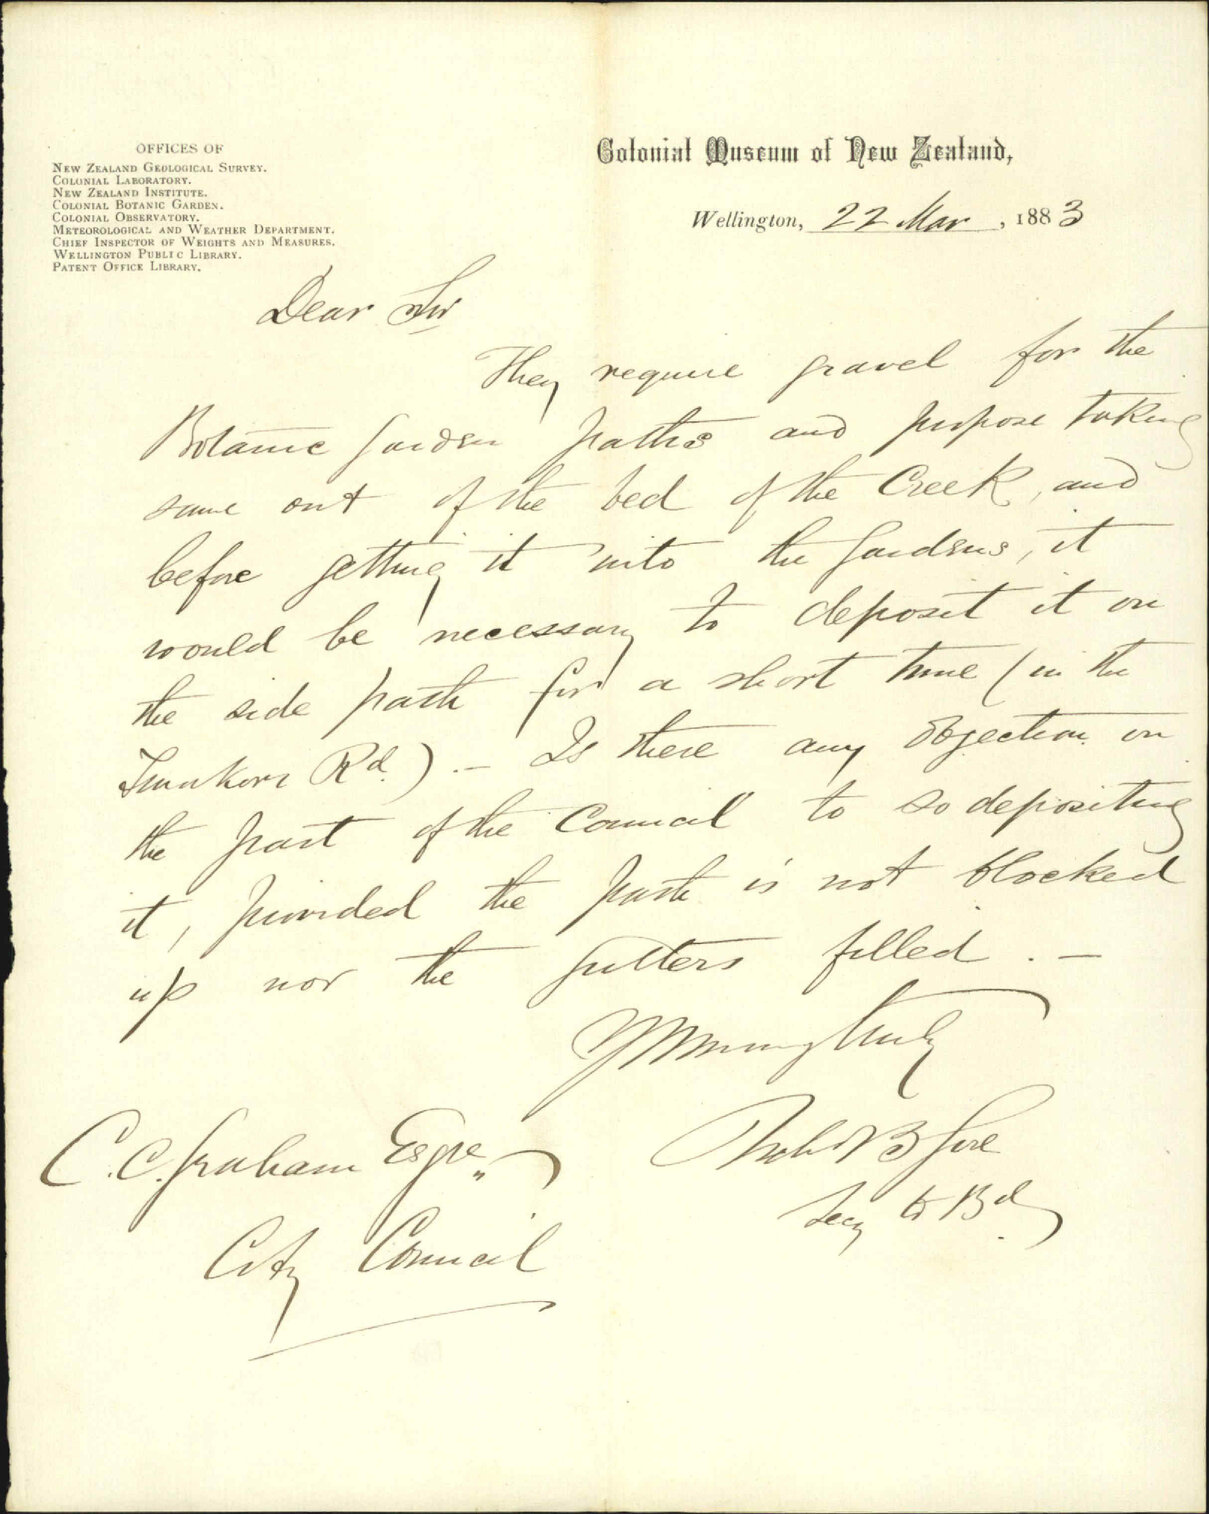 OFFICES OF
NEW ZEALAND GEOLOGICAL SURVEY.
COLONIAL LABORATORY.
NEW ZEALAND INSTITUTE.
COLONIAL BOTANIC GARDEN.
COLONIAL OBSERVATORY.
METEOROLOGICAL AND WEATHER DEPARTMENT.
CHIEF INSPECTOR OF WEIGHTS AND MEASURES.
WELLINGTON PUBLIC LIBRARY.
PATENT OFFICE LIBRARY.
Colonial Museum of New Zealand,
Wellington, 22 Mar, 1883
Dear Sir
They require gravel for the
Botanic Garden paths and propose taking
same out of the bed of the Creek, and
before getting it into the Gardens, it
would be necessary to deposit it on
the side path for a short time (in the
Tinakori Rd.). – Is there any objection on
the part of the Council to so depositing
it, provided the path is not blocked
up nor the gutters filled. –
Yrs very truly
B Gore
Secy to Bd.
C. C. Graham Esqre
City Council